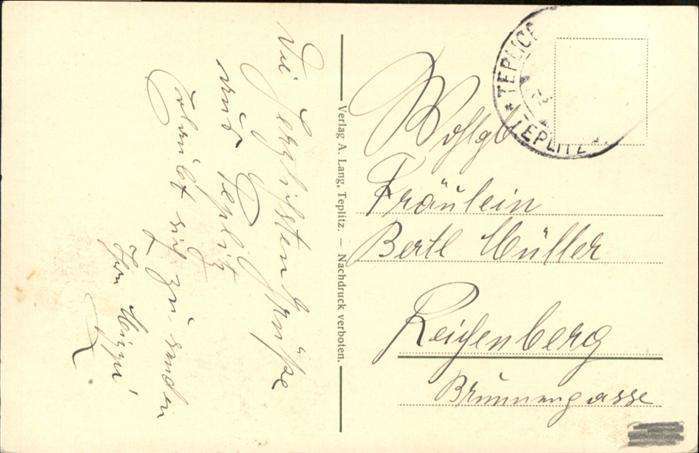 Die herzlichsten Grüße
aus Teplitz
erlaubt sich zu senden
Ihre Mizzi
Verlag A. Lang, Teplitz. — Nachdruck verboten.
* TEPLICE
TEPLITZ
Wohlgb
Fräulein
Bertl Müller
Reichenberg
Brunnengasse